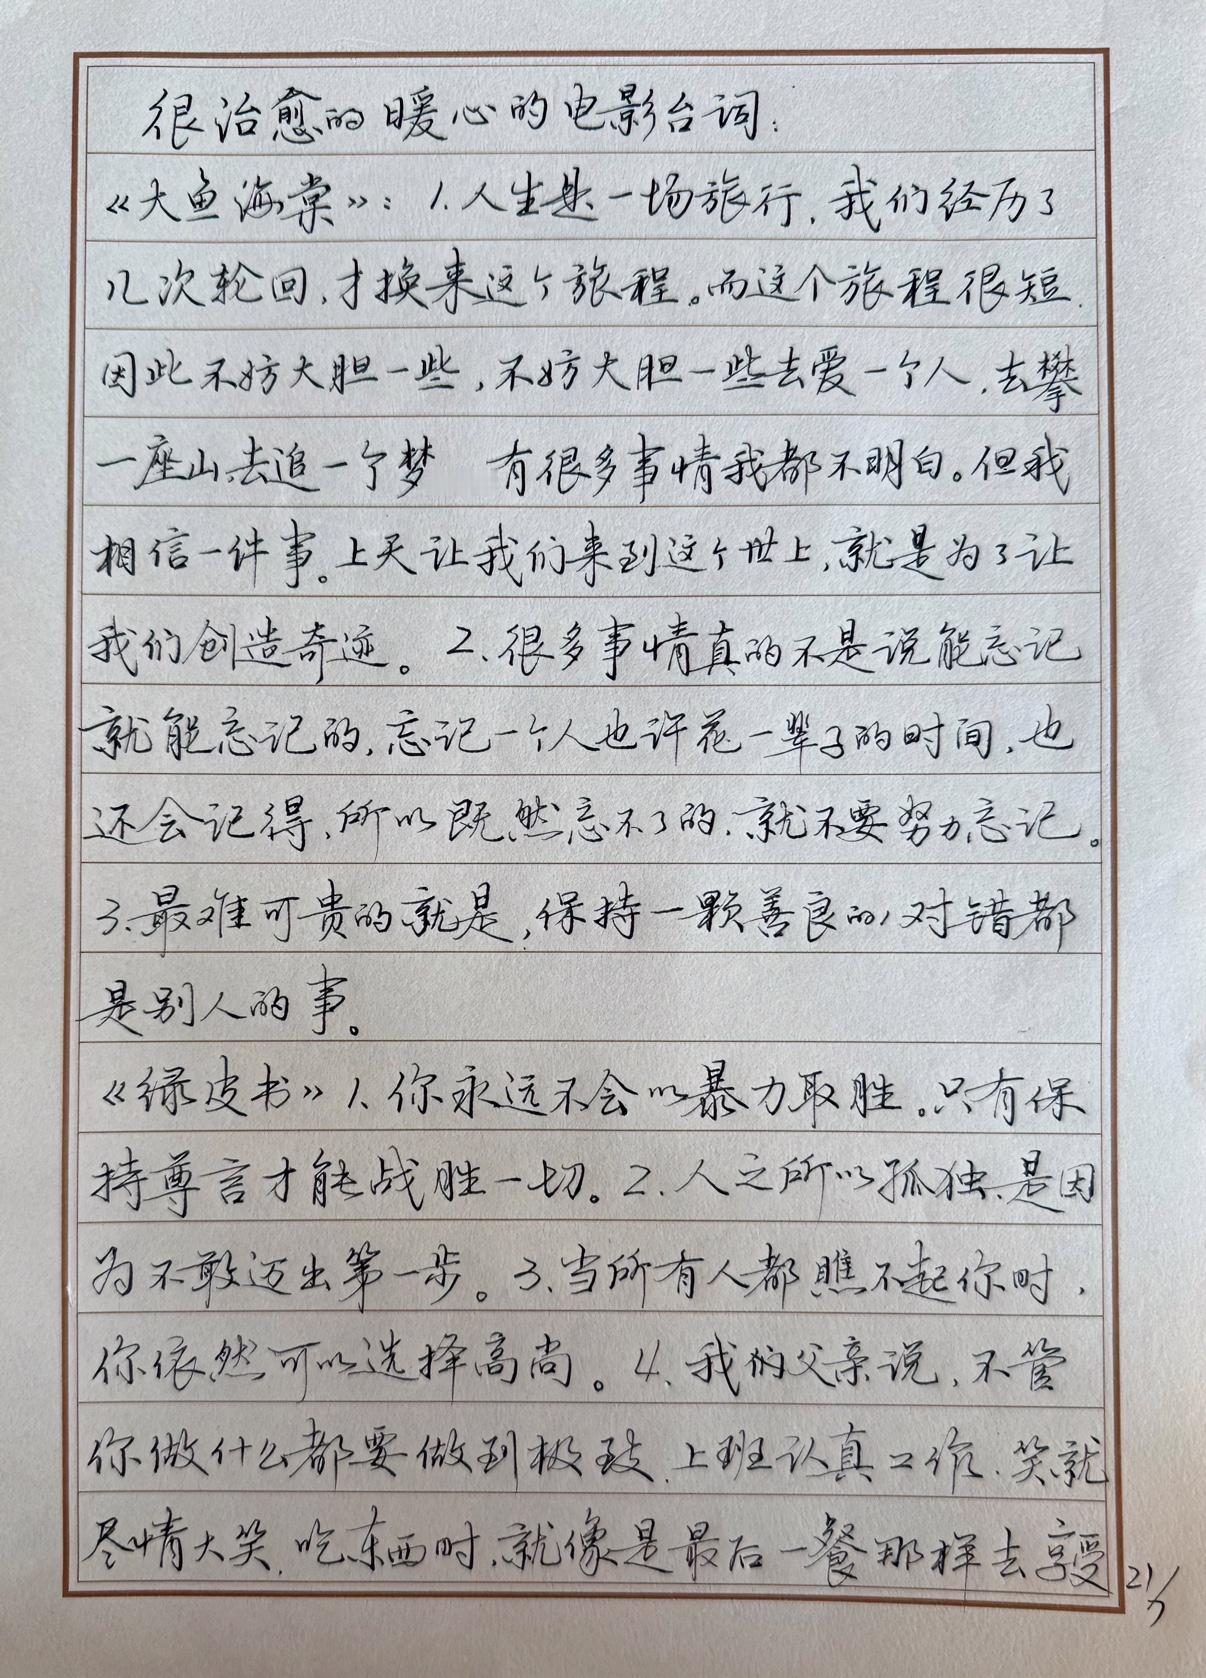 很治愈的暖心的电影台词：
《大鱼海棠》：1.人生是一场旅行，我们经历了
几次轮回，才换来这个旅程。而这个旅程很短，
因此不妨大胆一些，不妨大胆一些去爱一个人，去攀
一座山，去追一个梦 有很多事情我都不明白。但我
相信一件事。上天让我们来到这个世上，就是为了让
我们创造奇迹。2、很多事情真的不是说能忘记
就能忘记的，忘记一个人也许花一辈子的时间，也
还会记得，所以既然忘不了的，就不要努力忘记。
3、最难可贵的就是，保持一颗善良的，对错都
是别人的事。
《绿皮书》1、你永远不会以暴力取胜。只有保
持尊言才能战胜一切。2、人之所以孤独，是因
为不敢迈出第一步。3、当所有人都瞧不起你时，
你依然可以选择高尚。4、我的父亲说，不管
你做什么都要做到极致，上班认真工作，笑就
尽情大笑，吃东西时，就像是最后一餐那样去享受
21/7